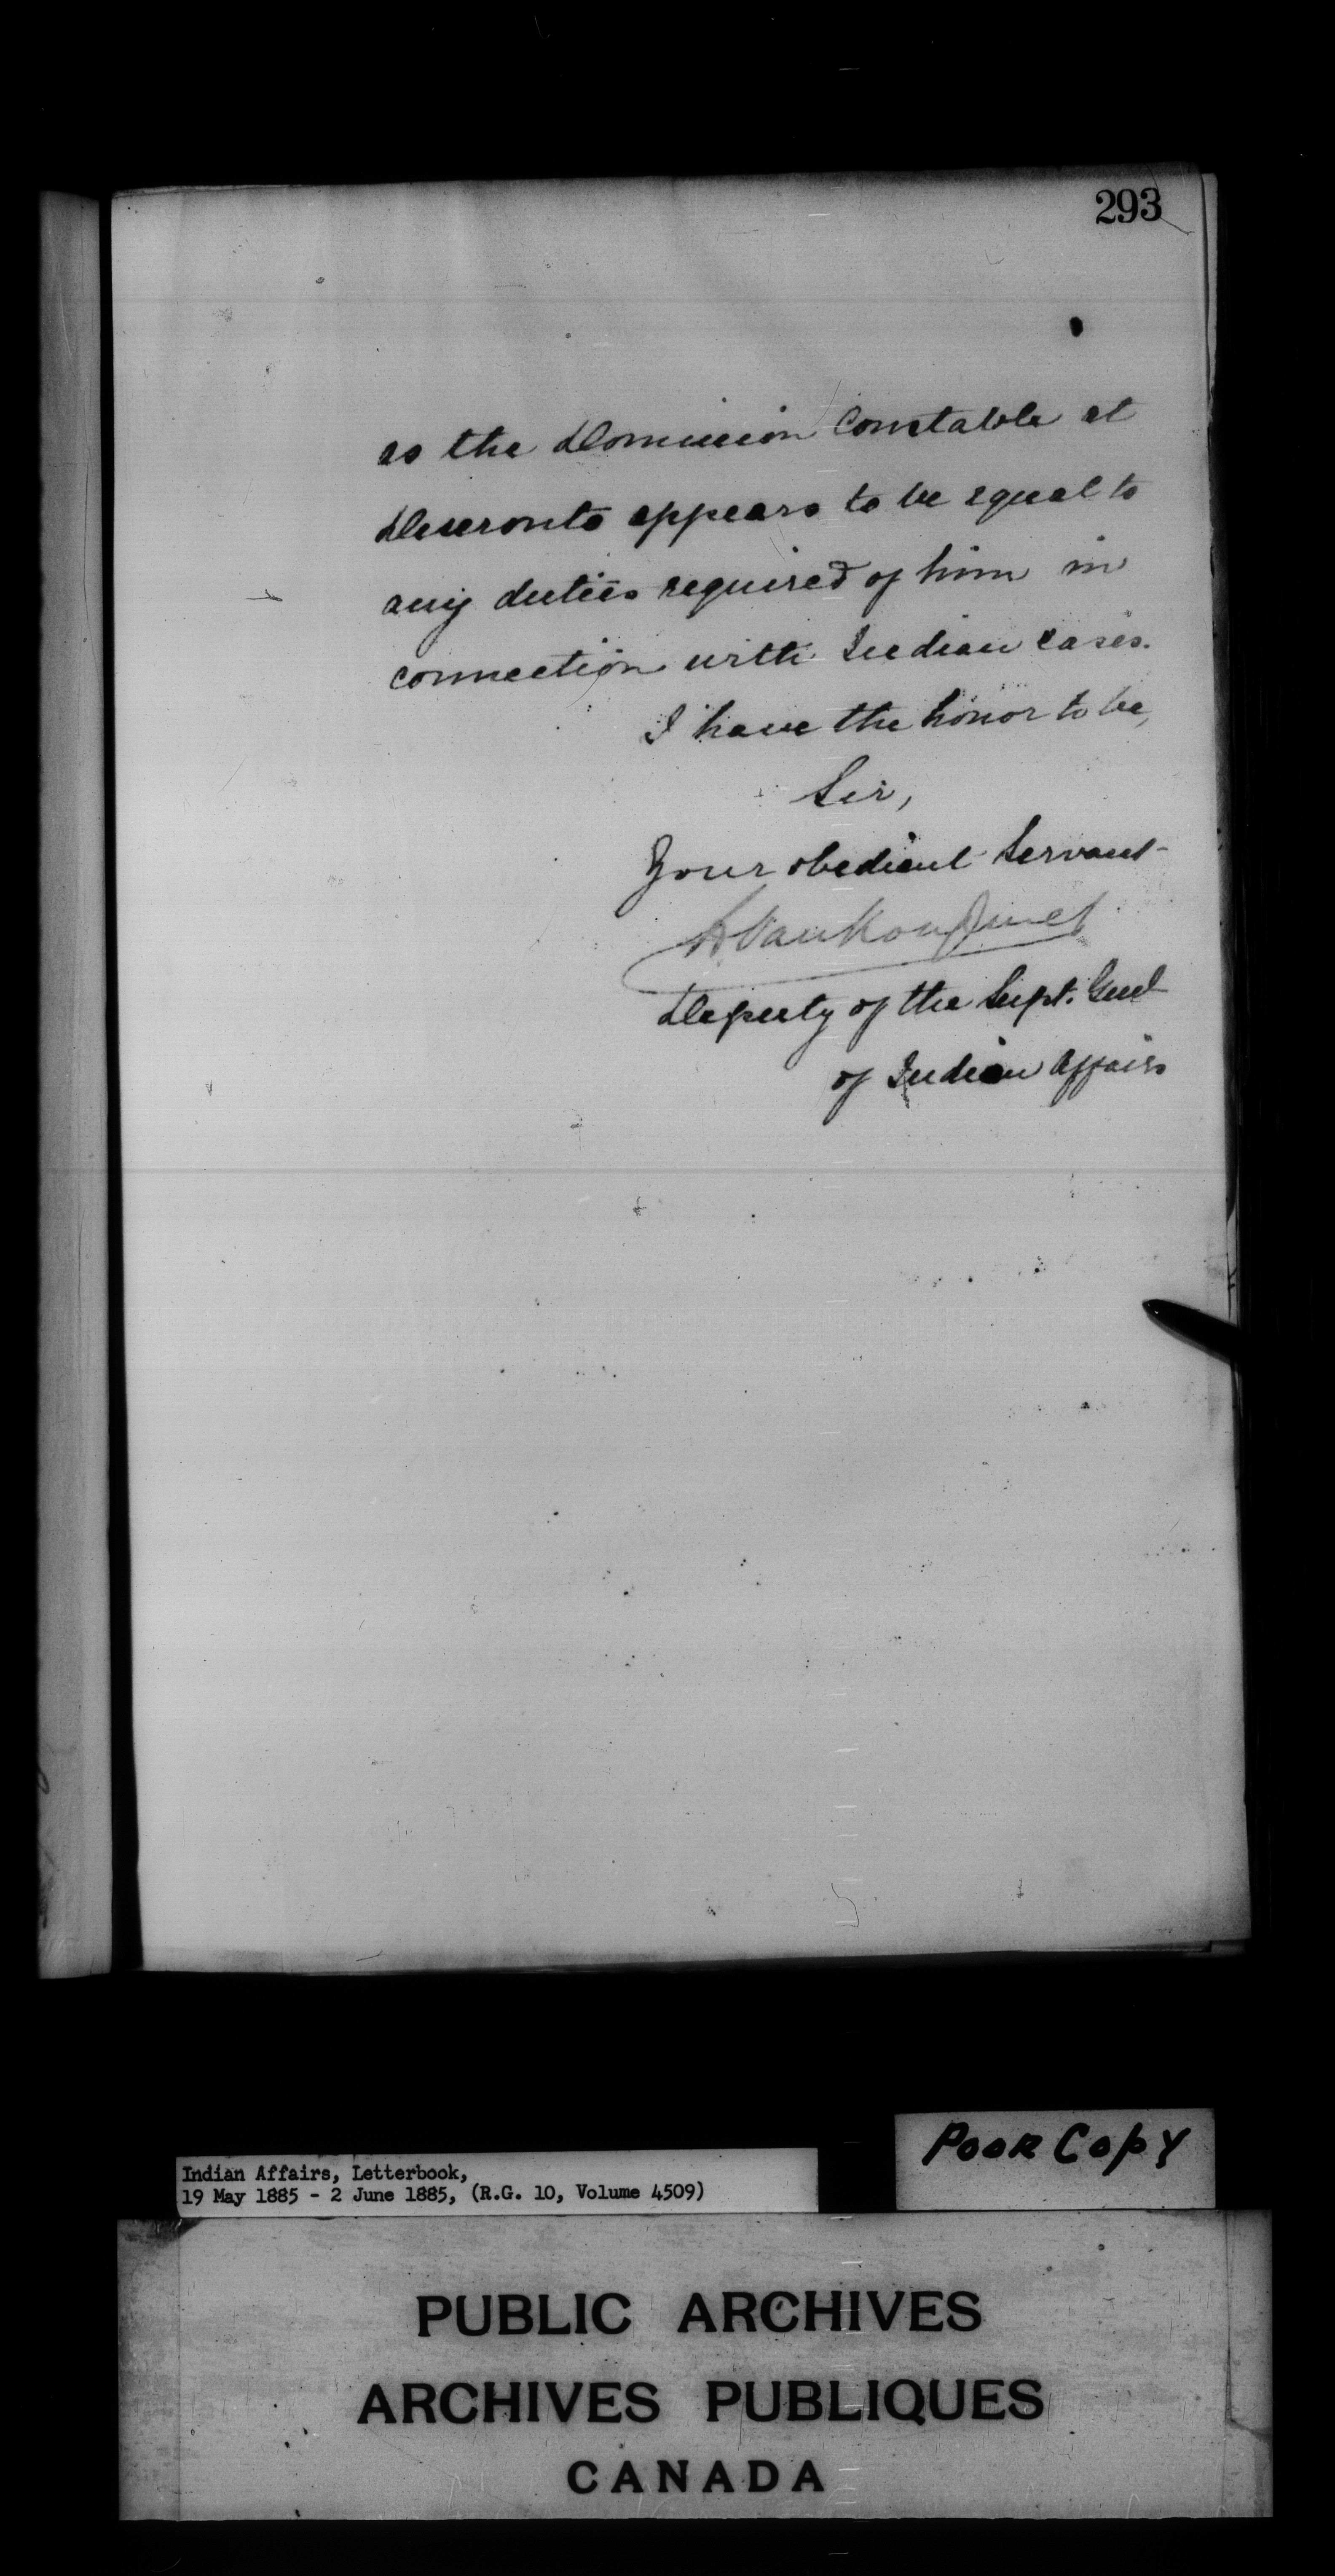 293
as the Dominion Constable at
Deseronto appears to be equal to
any duties required of him in
connection with Indian cases.
I have the honor to be,
Sir,
Your obedient Servant
L VanKoughnet
Deputy of the Supt. Genl
of Indian Affairs
Poor Copy
Indian Affairs, Letterbook,
19 May 1885 - 2 June 1885, (R.G. 10, Volume 4509)
PUBLIC ARCHIVES
ARCHIVES PUBLIQUES
CANADA